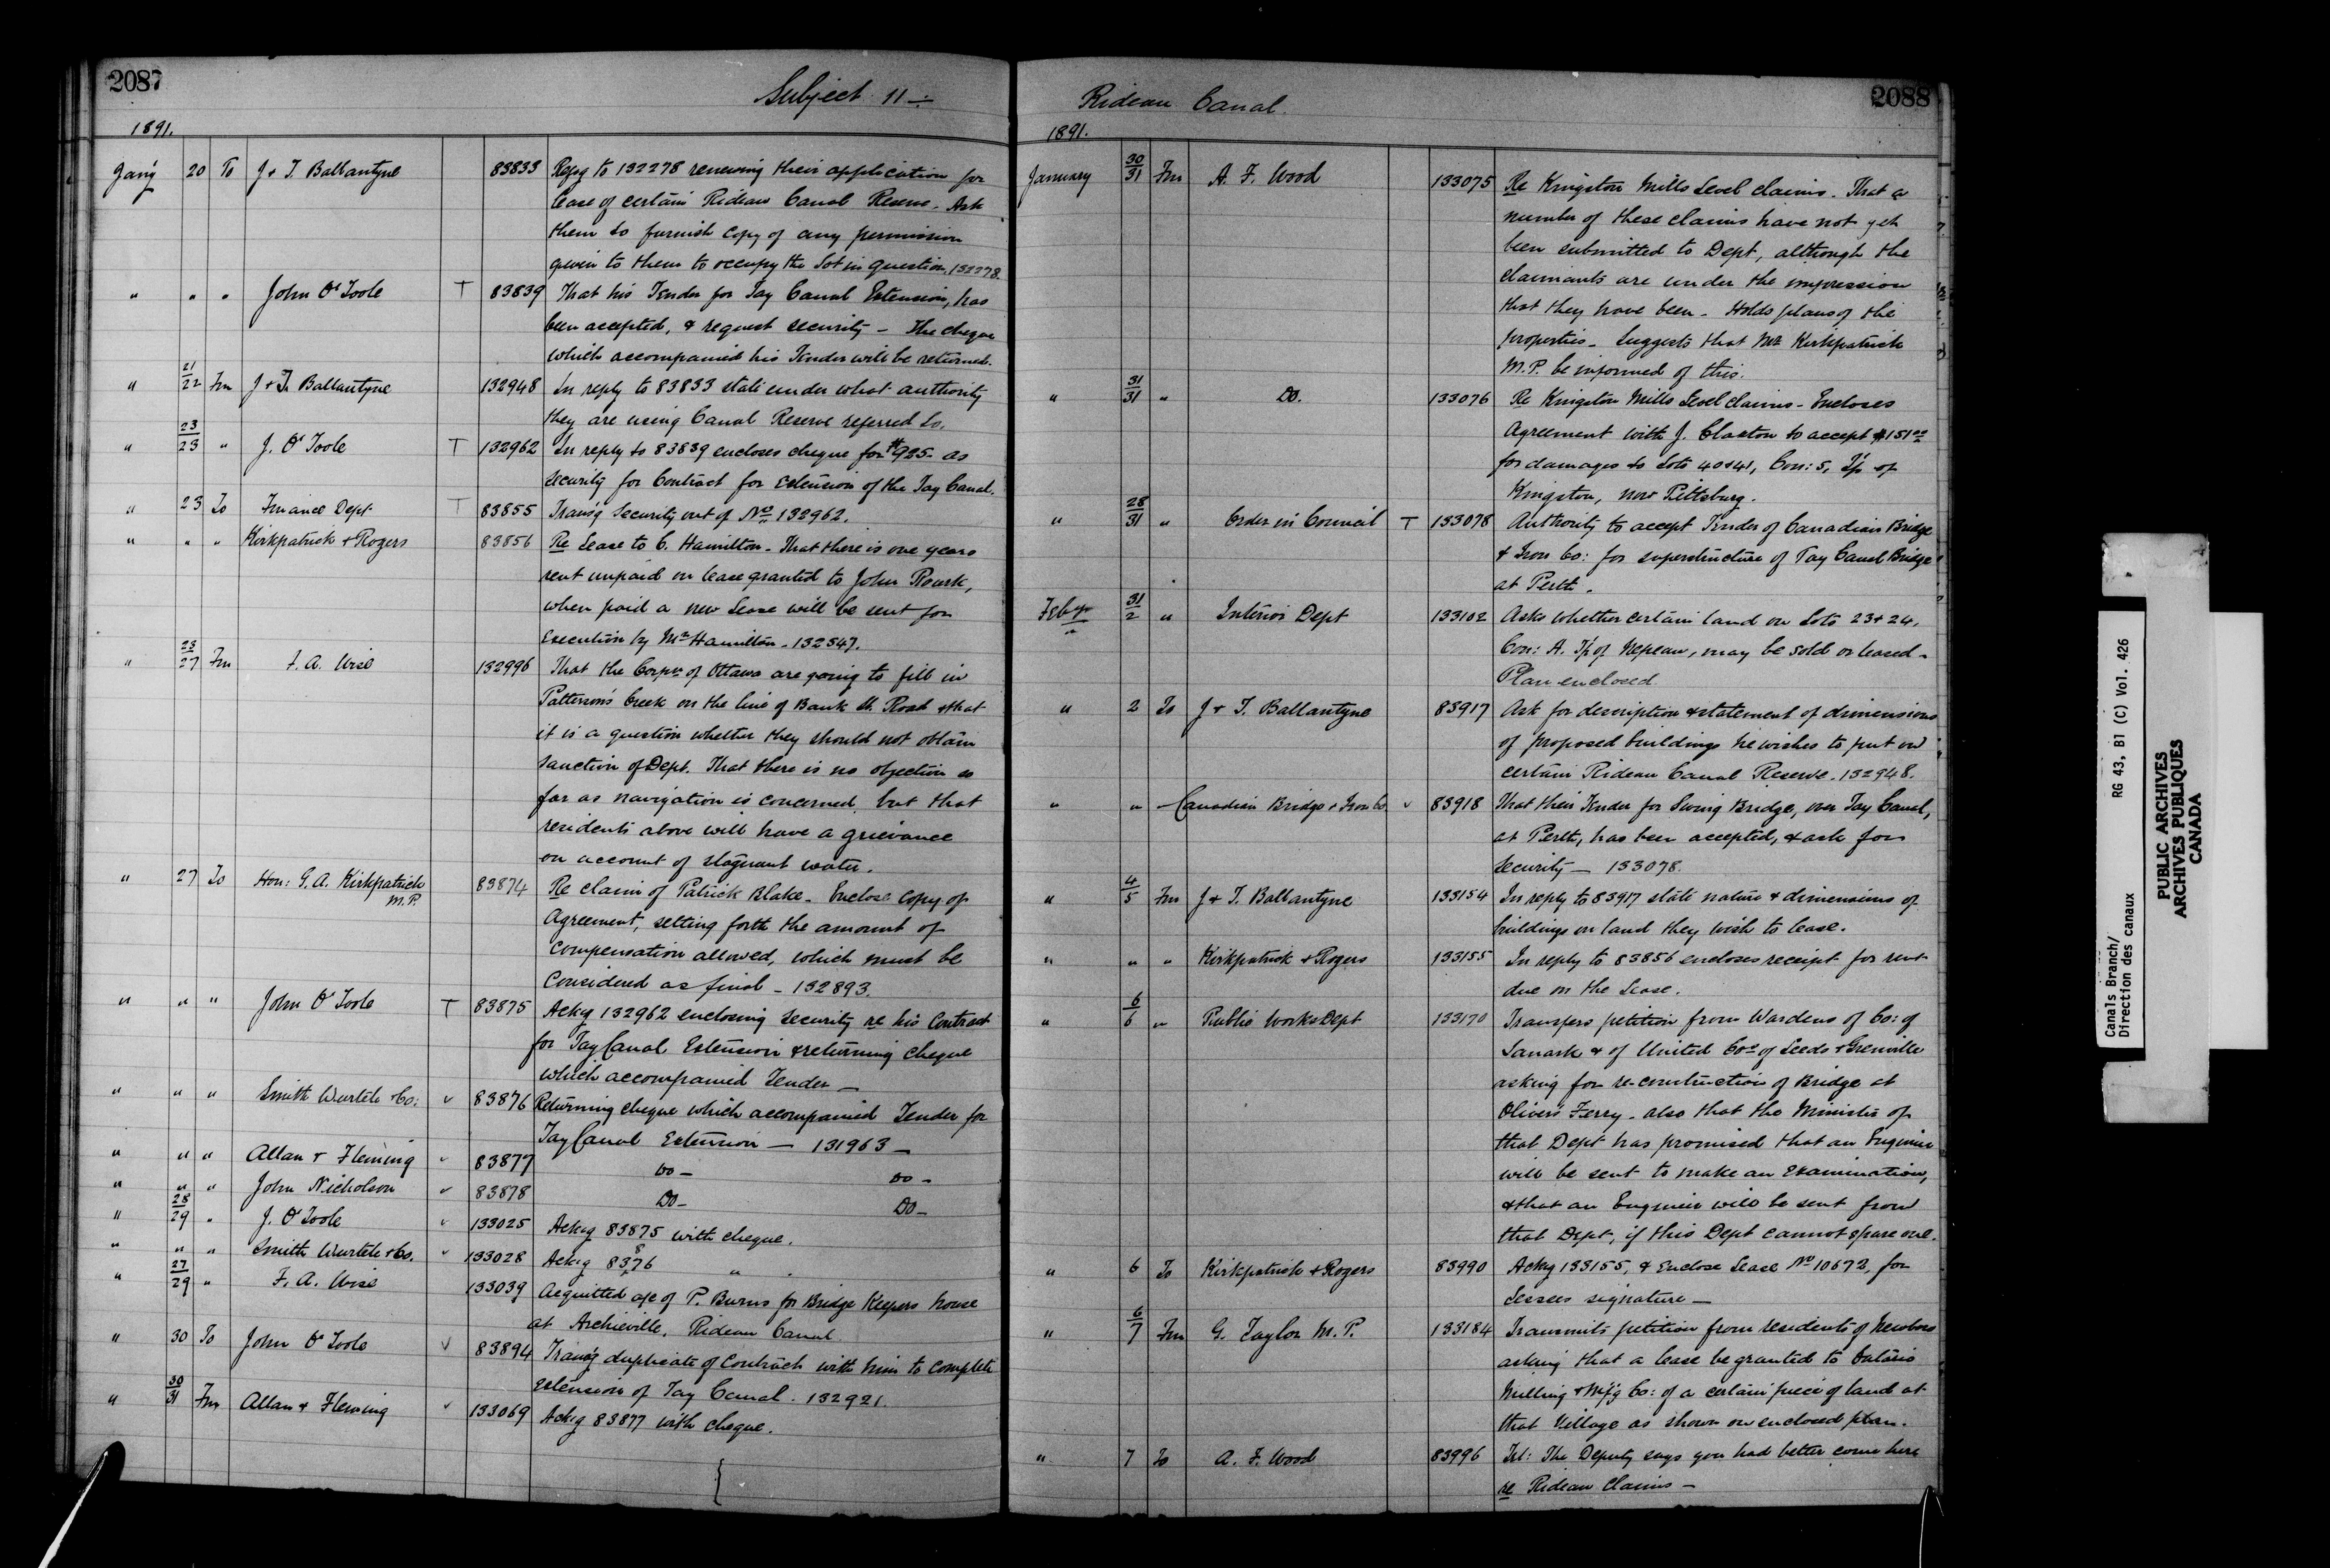 2087
Subject 11 ÷
1891.
Jan'y 20 To J & T. Ballantyne 83833 Reply to 132278 renewing their application for
lease of certain Rideau Canal Reserve. Ask
them to furnish copy of any permission
given to them to occupy the lot in question. 132278.
" " " John O'Toole T 83839 That his Tender for Tay Canal Extension, has
been accepted, & request security – The cheque
which accompanied his Tender will be returned.
" 21/22 Fm J & T. Ballantyne 132948 In reply to 83833 state under what authority
they are using Canal Reserve referred to.
" 23/23 " J. O'Toole T 132962 In reply to 83839 encloses cheque for $925– as
security for Contract for Extension of the Tay Canal.
" 23 To Finance Dept T 83855 Trans'g Security out of No 132962.
" " " Kirkpatrick & Rogers 83856 Re Lease to C. Hamilton – That there is one years
rent unpaid on lease granted to John Rourk,
when paid a new Lease will be sent for
execution by Mr Hamilton. 132547.
" 23/27 Fm F. A. Wise 132996 That the Corpn of Ottawa are going to fill in
Patterson's Creek on the line of Bank St. Road & that
it is a question whether they should not obtain
sanction of Dept. That there is no objection so
far as navigation is concerned but that
residents above will have a grievance
on account of stagnant water.
" 27 To Hon: G. A. Kirkpatrick M.P. 83874 Re claim of Patrick Blake – Enclose copy of
Agreement, setting forth the amount of
compensation allowed, which must be
considered as final – 132893.
" " " John O'Toole T 83875 Ackg 132962 enclosing Security re his Contract
for Tay Canal Extension & returning cheque
which accompanied Tender –
" " " Smith Wurtele & Co: " 83876 Returning cheque which accompanied Tender for
Tay Canal Extension – 131963 –
" " " Allan & Fleming " 83877 Do – Do –
" " " John Nicholson " 83878 Do – Do –
" 28/29 " J. O'Toole " 133025 Ackg 83875 with cheque.
" " " Smith Wurtele & Co. " 133028 Ackg 83876 " .
" 27/29 " F. A. Wise 133039 Acquitted a/c of P. Burns for Bridge Keepers house
at Archieville, Rideau Canal
" 30 To John O'Toole " 83894 Trans'g duplicate of Contract with him to complete
extension of Tay Canal. 132921.
" 30/31 Fm Allan & Fleming " 133069 Ackg 83877 with cheque.
Rideau Canal.
2088
1891.
January 30/31 Fm A. F. Wood 133075 Re Kingston Mills Level claims. That a
number of these claims have not yet
been submitted to Dept, although the
claimants are under the impression
that they have been – Holds plans of the
properties – Suggests that Mr Kirkpatrick
M.P. be informed of this.
" 31/31 " Do. 133076 Re Kingston Mills Level claims – Encloses
Agreement with J. Claxton to accept $151 00
for damages to Lots 40 & 41, Con: 5, T'p of
Kingston, now Pittsburg.
" 28/31 " Order in Council T 133078 Authority to accept Tender of Canadian Bridge
& Iron Co: for superstructure of Tay Canal Bridge
at Perth.
Feby 31/2 " Interior Dept 133102 Asks whether certain land on Lots 23 & 24,
Con: A. T'p of Nepean, may be sold or leased –
Plan enclosed.
" 2 To J & T. Ballantyne 83917 Ask for description & statement of dimensions
of proposed buildings he wishes to put on
certain Rideau Canal Reserve. 132948.
" " – Canadian Bridge & Iron Co " 83918 That their Tender for Swing Bridge, over Tay Canal,
at Perth, has been accepted, & ask for
security – 133078.
" 4/5 Fm J & T. Ballantyne 133154 In reply to 83917 state nature & dimensions of
buildings on land they wish to lease.
" " " Kirkpatrick & Rogers 133155 In reply to 83856 encloses receipt for rent
due on the Lease.
" 6/6 " Public Works Dept 133170 Transfers petition from Wardens of Co: of
Lanark & of United Cos of Leeds & Grenville
asking for re-construction of Bridge at
Oliver's Ferry – also that the Minister of
that Dept has promised that an Engineer
will be sent to make an examination,
& that an Engineer will be sent from
that Dept, if this Dept cannot spare one.
" 6 To Kirkpatrick & Rogers 83990 Ackg 133155, & Enclose Lease No 10672, for
Lessees signature –
" 6/7 Fm G. Taylor M.P. 133184 Transmits petition from residents of Newboro
asking that a lease be granted to Ontario
Milling & Mf'g Co: of a certain piece of land at
that Village as shown on enclosed plan.
" 7 To A. F. Wood 83996 Tel: The Deputy says you had better come here
re Rideau Claims –
Canals Branch/
Direction des canaux
RG 43, B1 (C) Vol. 426
PUBLIC ARCHIVES
ARCHIVES PUBLIQUES
CANADA